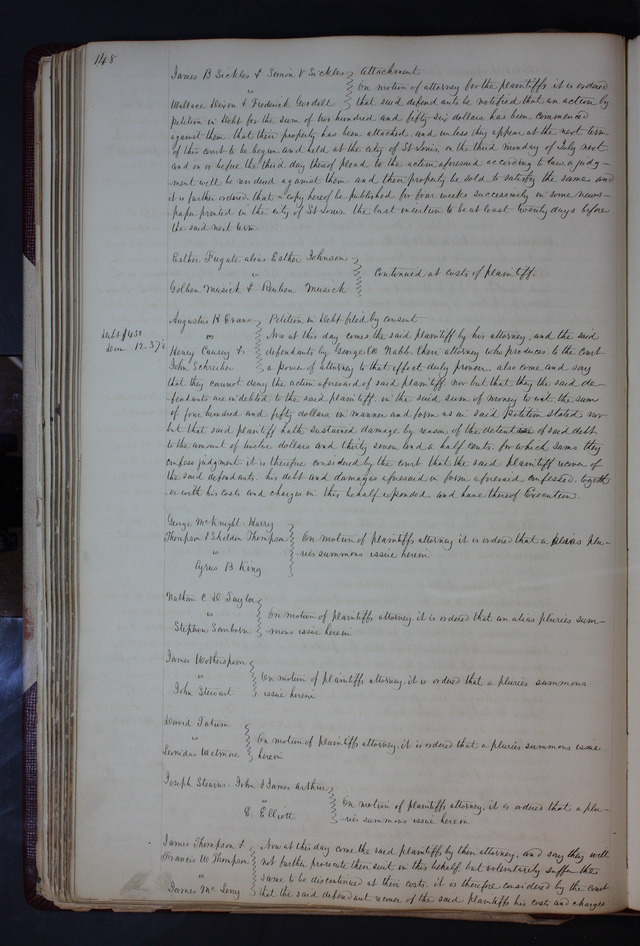 148
James B Sickles & Simon V Sickles } Attachment
" On motion of attorney for the plaintiffs it is ordered
Wallace & Frederick that said defendants be notified that an action by
petition in Debt for the sum of two hundred and fifty six dollars has been commenced
against them that their property has been attached, and unless they appear at the next term
of this court to be begun and held at the city of St Louis on the third monday of July next
and on or before the third day thereof plead to the action aforesaid according to law, a judg-
ment will be rendered against them and their property be sold to satisfy the same and
it is further ordered, that a copy hereof be published for four weeks successively in some news-
paper printed in the city of St Louis the last insertion to be at least twenty days before
the said next term
Esther Fugate alias Esther Johnson
" } Continued at costs of plaintiff.
Musick & Reuben Musick
Augustus H Evans } Petition in Debt filed by consent
Debt $450
" Now at this day comes the said plaintiff by his attorney, and the said
Dam 12.37½
Henry Causey & defendants by George W Nabb their attorney who produces to the Court
John Schreiber a power of attorney to that effect duly proven also come and say
that they cannot deny the action aforesaid of said plaintiff nor but that they the said de-
fendants are indebted to the said plaintiff in the said sum of money to wit the sum
of four hundred and fifty dollars in manner and form as in said petition stated nor
but that said plaintiff hath sustained damage by reason of the detention of said debt
to the amount of twelve dollars and thirty seven and a half cents, for which sums they
confess judgment it is therefore considered by the court that the said plaintiff recover of
the said defendants his debt and damages aforesaid in form aforesaid confessed, togeth-
er with his costs and charges in this behalf expended and have thereof Execution.
George McKnight Harry
Thompson & Sheldon Thompson } On motion of plaintiffs attorney it is ordered that a plu-
" ries summons issue herein
Cyrus B King
Nathan C D Taylor
" } On motion of plaintiffs attorney, it is ordered that an alias pluries sum-
Stephen Sanborn mons issue herein
James Wotherspoon
" } On motion of plaintiffs attorney, it is ordered that a pluries summons
John Stewart issue herein
David Tatum
" } On motion of plaintiffs attorney, it is ordered that a pluries summons issue
Leonidas Wetmore herein
Joseph Stearns, John & James Arthur
" } On motion of plaintiffs attorney, it is ordered that a plu-
E. Elliott ries summons issue herein
James Thompson & } Now at this day come the said plaintiffs by their attorney, and say they will
Francis W Thompson not further prosecute their suit in this behalf but voluntarily suffer the
" same to be discontinued at their costs. it is therefore considered by the court
James McLony that the said defendant recover of the said plaintiffs his costs and charges